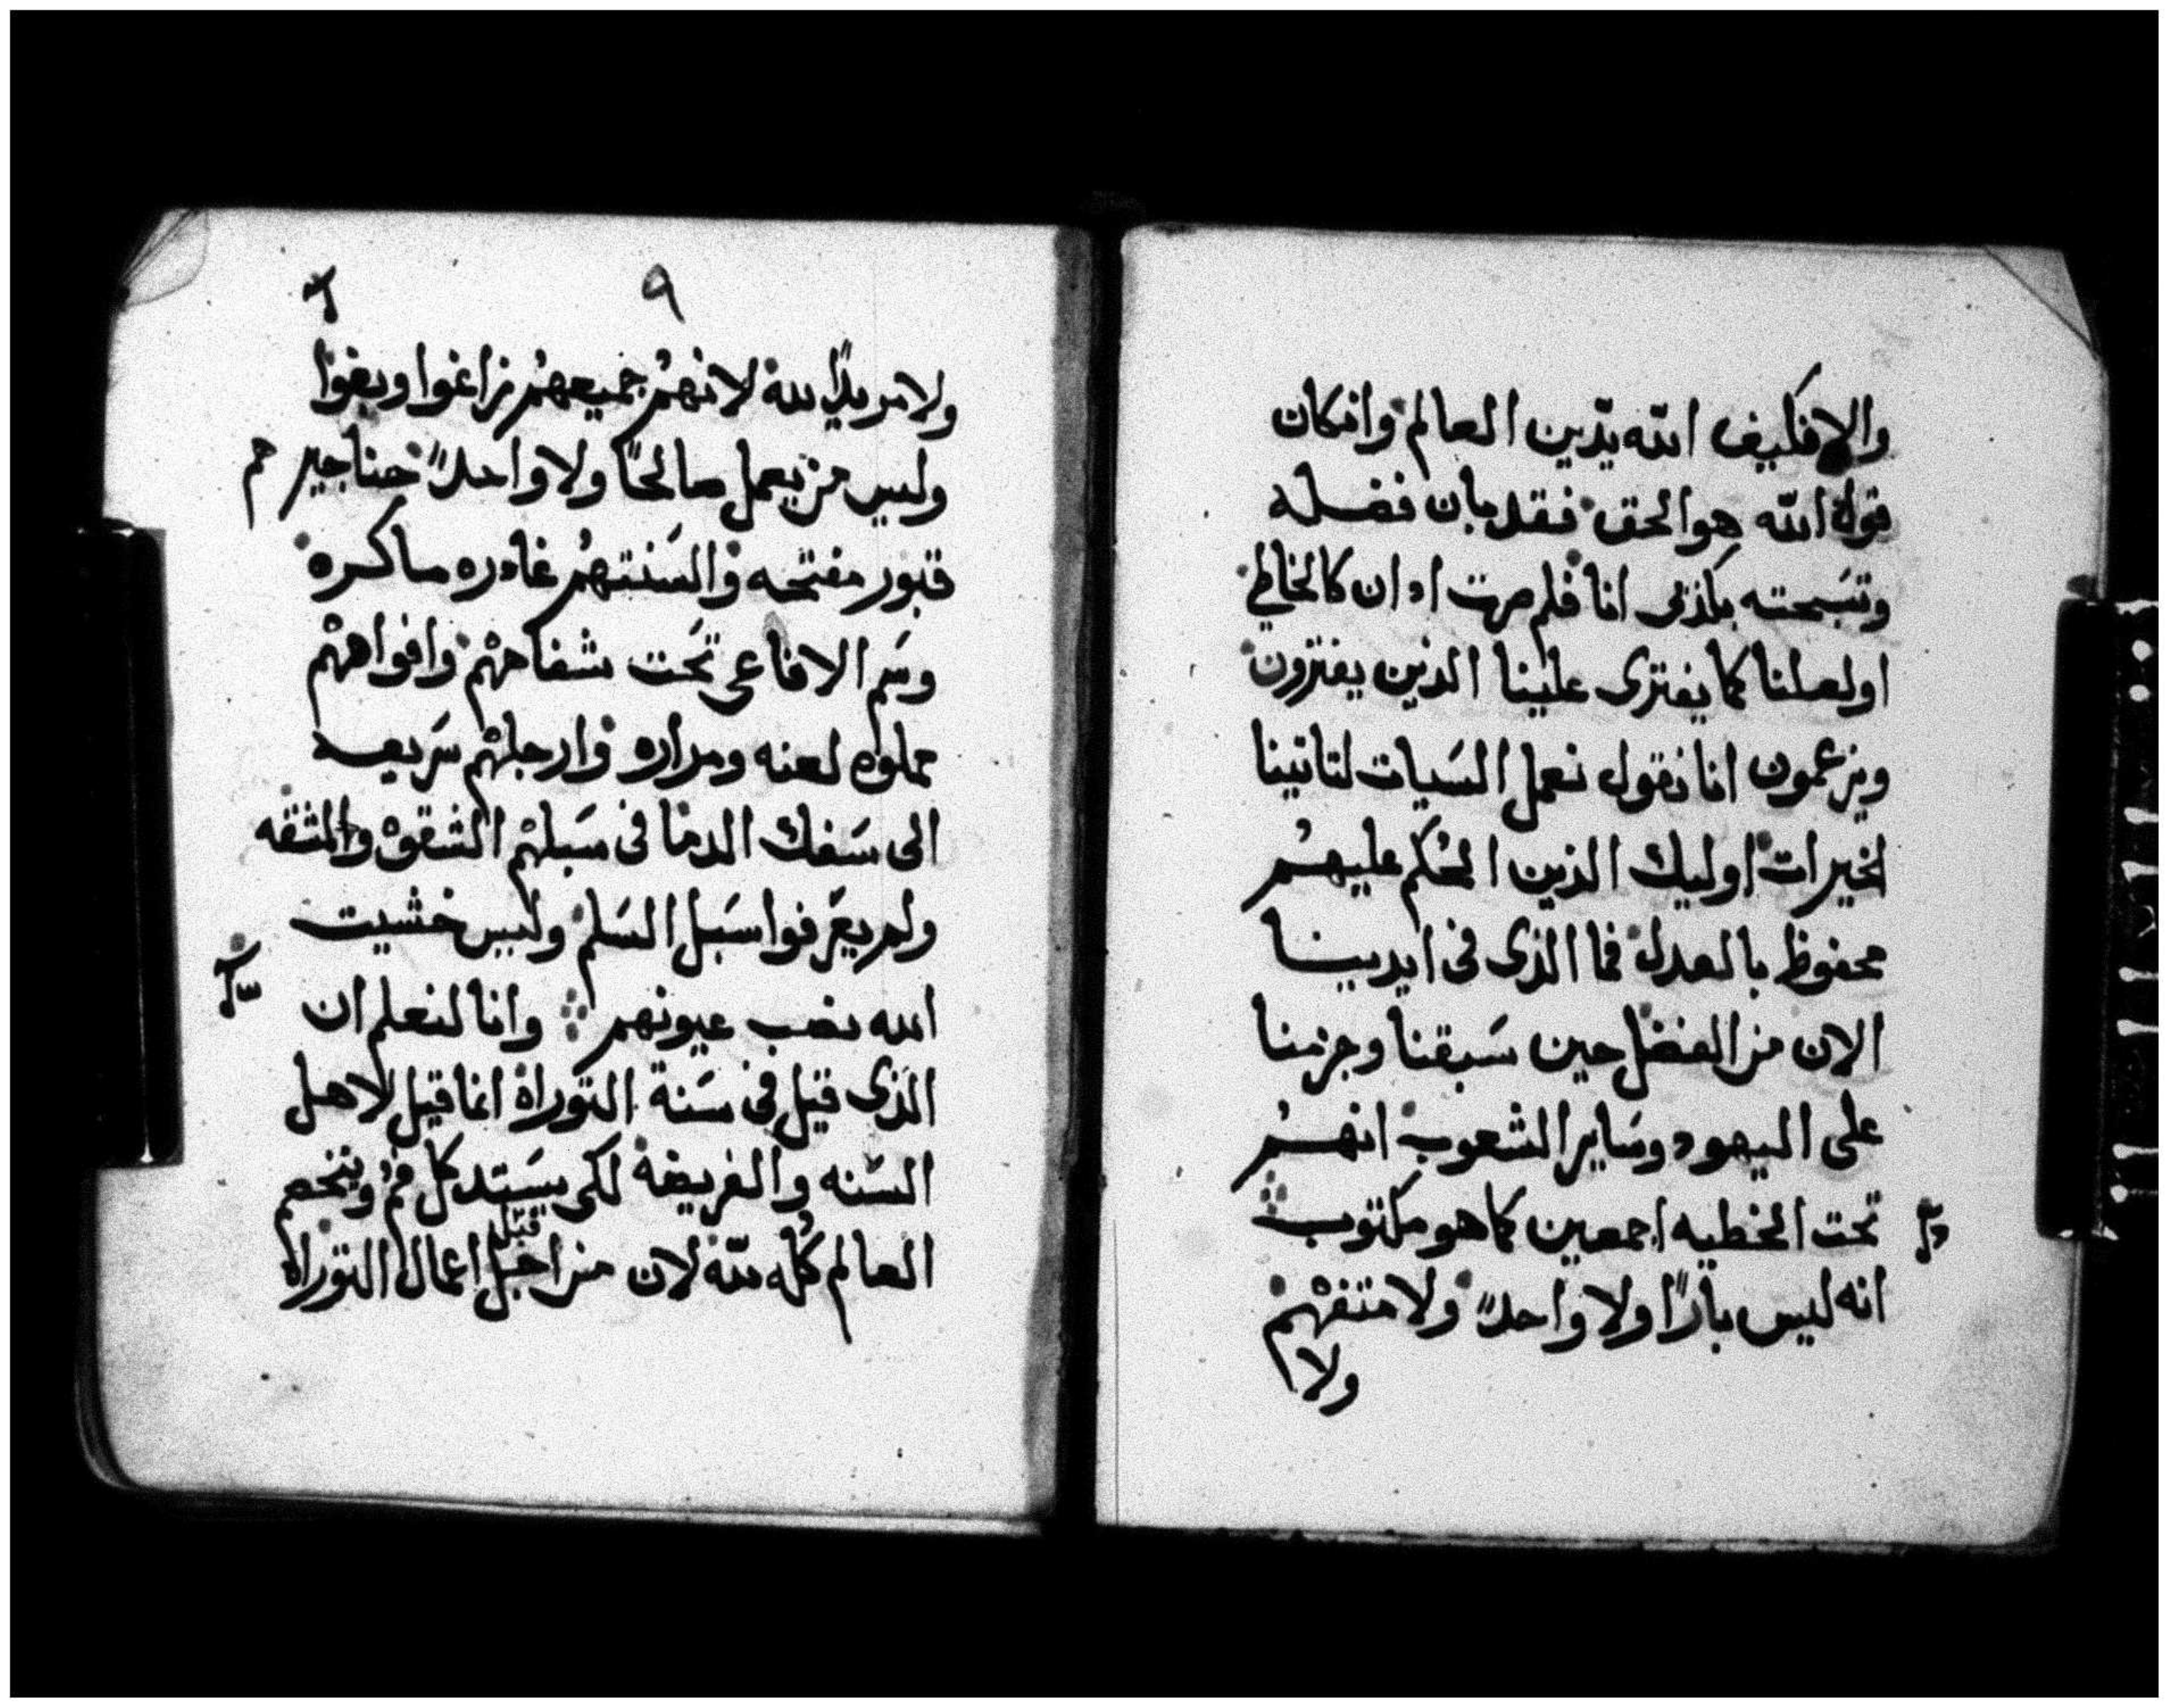 والا فكيف الله يدين العالم وان كان
قول الله هو الحق فقد بان فضله
وتسبحته بكذبى انا فلم صرت ادان كالخاطى
او لعلنا كما يفترى علينا الذين يفترون
ويزعمون انا نقول نعمل السيات لتاتينا
الخيرات اوليك الذين الحُكم عليهُم
محفوظ بالعدل فما الذى فى ايدينا
الان من الفضل حين سَبقنا وجزمنا
على اليهود وسَاير الشعوب انهُم
تحت الخطيه اجمعين كما هو مكتوب
انه ليس بارًا ولا واحدًا ولا متفهم
ولا
٩
ولا مريدًا لله لانهُم جميعهُم زاغوا وبغوا
وليس من يعمل صالحًا ولا واحدًا حناجيرهم
قبور مفتحه والسَنتهُم غادره ماكره
وسَم الافاعى تحَت شفاههْم وافواههْم
مملوه لعنه ومراره وارجلهْم سَريعه
الى سَفك الدما فى سَبلهْم الشقوْ والمشقه
ولم يعَرفوا سَبل السَلم وليس خشيت
الله نصب عيونهم وانا لنعلم ان
الذى قيل فى سَنة التوراة انما قيل لاهل
السَنه والفريضة لكى يسَتد كل فم ويخصم
العالم كُله لله لان من اجل اعمال التوراة
قبل